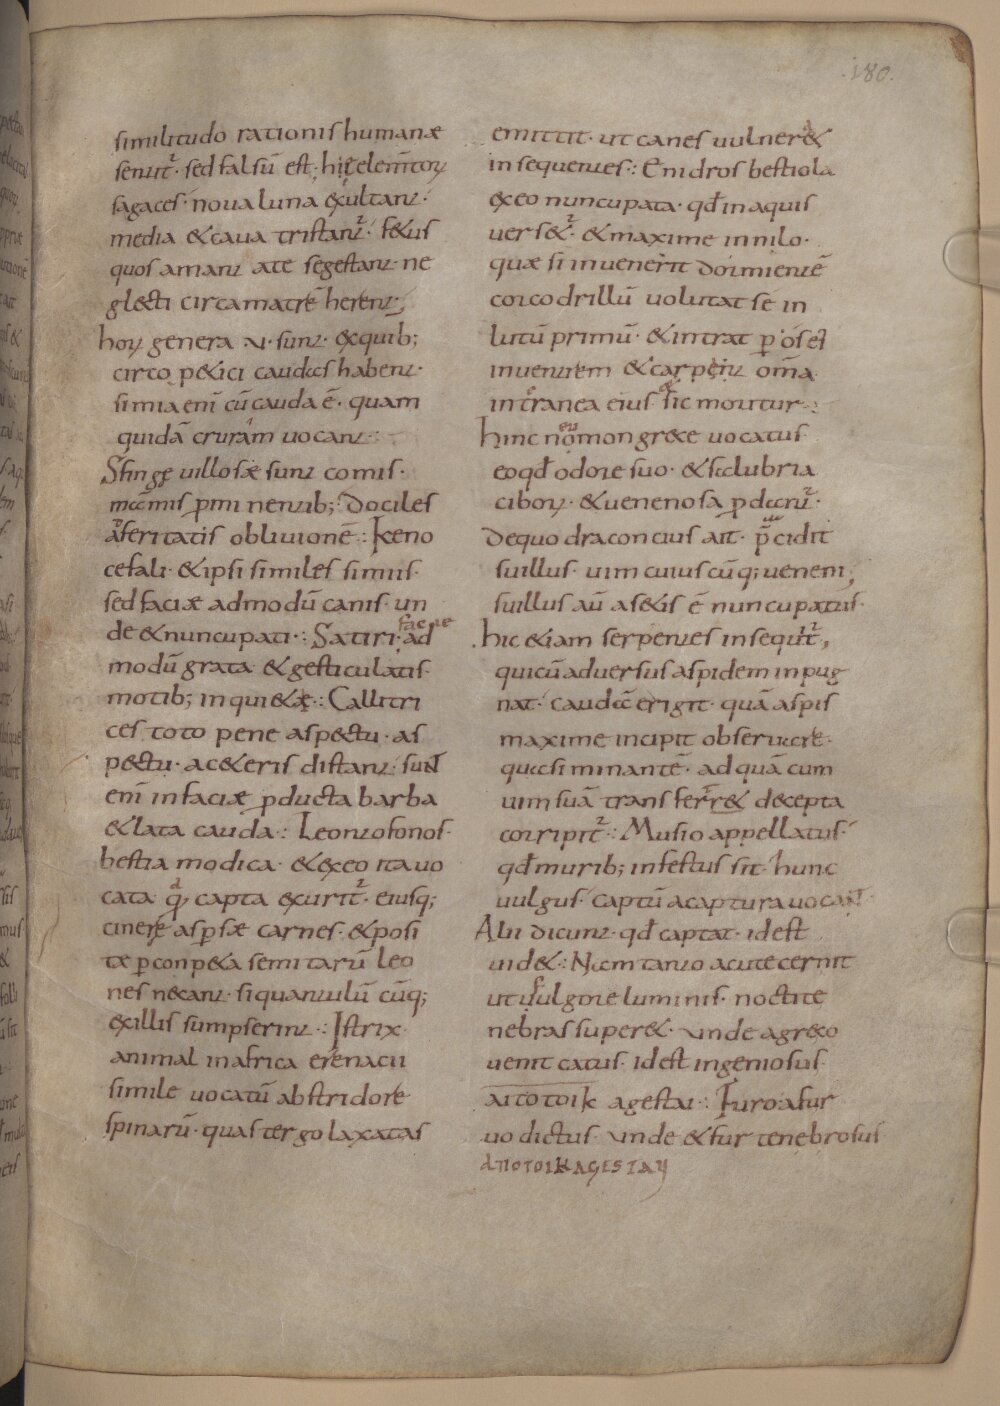 .180.
similitudo rationis humanæ
sentit᷑· sed falsū est· hii elemītoꝝ
sagaces· noua luna exultant·
media &caua tristant᷑· f&us
quos amant ate segestant· ne
glecti circa matrē herent,
hoꝝ genera ui· sunt· exquib;
circo p&ici caudas habent·
simia enī cū cauda ē· quam
quidā cruram uocant·
Sfinge uillosæ sunt comis·
māmis ꝓmi nentib; dociles
aferitatis obliuionē:· Keno
cefali· &ipsi similes simiis·
sed faciæ admodū canis· un
de &nuncupati·:· Satiri· ad
faciæ
modū grata· &gesticulatis
motib; inqui&æ·:· Callitri
ces toto pene aspectu· as
pectu· ac&eris distant· sunt
enī infaciæ ꝓducta barba
&lata cauda·:· Leontofonos·
bestia modica· &exeo ita uo
cata q; capta exurit᷑· eiusq;
cinere aspsæ carnes· &posi
tæ ꝑconp&a semitarū leo
nes necant· siquantulū cūq;
exillis sumpserint·:· Istrix·
animal inafrica erenacii
simile uocatū abstridore
spinarū· quas tergo laxatas
emittit· ut canes uulner&
insequentes·:· Enidros bestiola
exeo nuncupata· qđ inaquis
uers&᷑· &maxime innilo·
quæ si inuenerit dormientē
corcodrillū uolutat se in
lutū primū· &intrat ꝑ os et
inuentrem &carpens om̄a
intranea eius sic moritur·:·
hinc nomon grece uocatus
eu
eoqđ odore suo· &salubria
ciboꝝ· &uenenosa ꝓdant᷑·
dequo dracontius ait· p̄cidit
suillus· uim cuius cūq; ueneni,
suillus aū as&is ē nuncupatus·
hic &iam serpentes insequit᷑,
quicū aduersus aspidem inpug
nat· caudā erigit· quā aspis
maxime incipit obseruare·
quasi minantē· ad quā cum
uim suā transferr& decepta
corripit᷑·:· Musio appellatus·
qđ murib; infestus sit· hunc
uulgus· captū acaptura uocant·
Alii dicunt· qđ captat· idest
uid&·: Nam tanto acute cernit
ut fulgore luminis· noctite
nebras super&· unde agreco
uenit catus· idest ingeniosus·
aitotoik agestai·:· Furo afur
uo dictus· unde &fur tenebrosus
aпotoikagestay